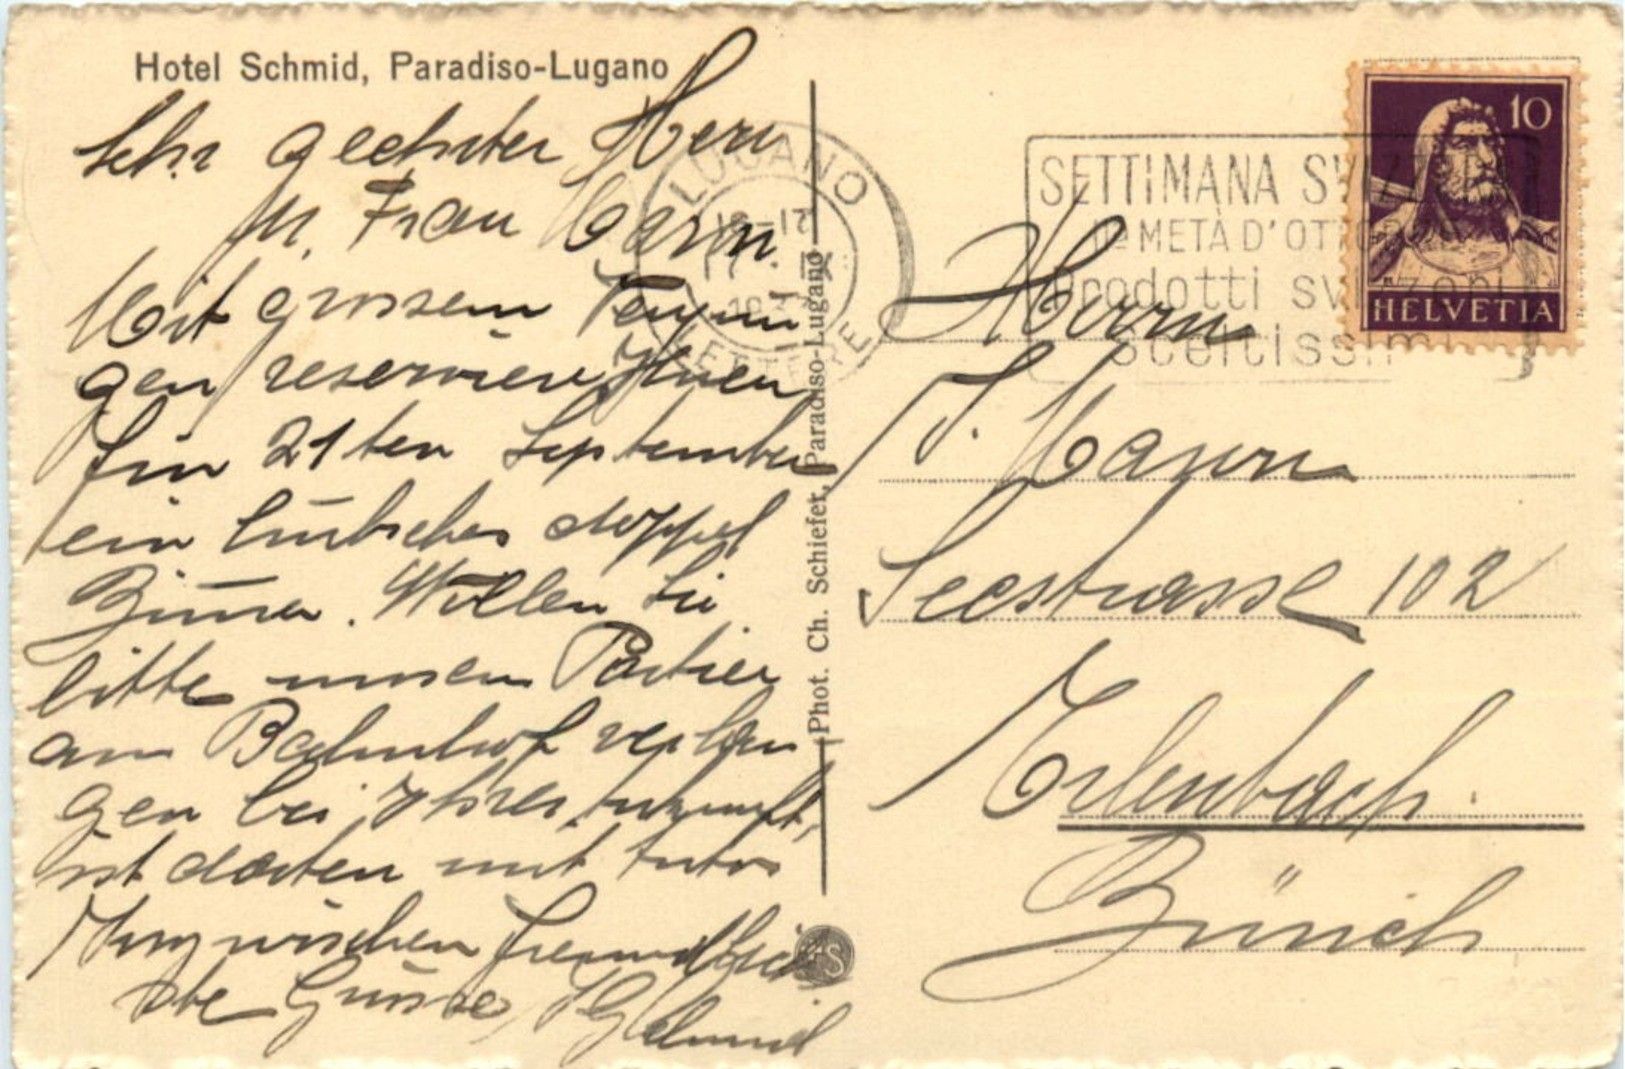 Hotel Schmid, Paradiso-Lugano
Sehr geehrter Herr
u. Frau
Mit grossem
gen reservieren Ihnen
für 21ten September
ein hübsches doppel
Zimer. Wollen Sie
bitte unsern Portier
am Bahnhof verlan
gen bei Ihrer Ankunft,
ist dorten mit Auto
Inzwischen freundlich
ste Grüsse
Schmid
Phot. Ch. Schiefet, Paradiso-Lugano
LUGANO
LETTERE
SETTIMANA SVIZZERA
META D'OTTOBRE
Prodotti svizzeri
sceltissimi
10
HELVETIA
Herrn
J.
Seestrasse 102
Erlenbach
Zürich